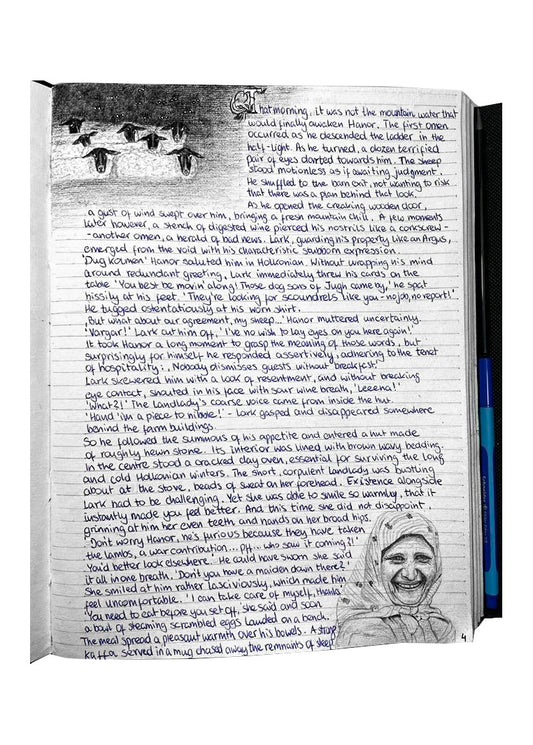 That morning, it was not the mountain water that
would finally awaken Hanor. The first omen
occurred as he descended the ladder in the
half-light. As he turned, a dozen terrified
pair of eyes darted towards him. The sheep
stood motionless as if awaiting judgment.
He shuffled to the barn exit, not wanting to risk
that there was a plan behind that look.
As he opened the creaking wooden door,
a gust of wind swept over him, bringing a fresh mountain chill. A few moments
later however, a stench of digested wine pierced his nostrils like a corkscrew -
- another omen, a herald of bad news. Lark, guarding his property like an Argus,
emerged from the void with his characteristic stubborn expression.
'Dug koumen' Hanor saluted him in Holkonian. Without wrapping his mind
around redundant greeting, Lark immediately threw his cards on the
table 'You best be movin' along! Those dog sons of Jugh came by,' he spat
hissily at his feet. 'They're looking for scoundrels like you - no job, no report!'
He tugged ostentatiously at his worn shirt.
'But what about our agreement, my sheep...' Hanor muttered uncertainly.
'Vargar!' Lark cut him off, 'I've no wish to lay eyes on you here again!'
It took Hanor a long moment to grasp the meaning of those words, but
surprisingly for himself he responded assertively, adhering to the tenet
of hospitality: ,Nobody dismisses guests without breakfast!'
Lark skewered him with a look of resentment, and without breaking
eye contact, shouted in his face with sour wine breath, 'Leeena!'
'What?!' The Landlady's coarse voice came from inside the hut.
'Hand 'im a piece to nibble!' - Lark gasped and disappeared somewhere
behind the farm buildings.
So he followed the summons of his appetite and entered a hut made
of roughly hewn stone. Its interior was lined with brown wavy bedding.
In the centre stood a cracked clay oven, essential for surviving the long
and cold Holkonian winters. The short, corpulent landlady was bustling
about at the stove, beads of sweat on her forehead. Existence alongside
Lark had to be challenging. Yet she was able to smile so warmly, that it
instantly made you feel better. And this time she did not disappoint,
grinning at him her even teeth and hands on her broad hips.
'Don't worry Hanor, he's furious because they have taken
the lambs, a war contribution... pff... who saw it coming?!'
You'd better look elsewhere.' He could have sworn she said
it all in one breath. 'Don't you have a maiden down there?'
She smiled at him rather lasciviously, which made him
feel uncomfortable. 'I can take care of myself, thanks'
'You need to eat before you set off,' she said and soon
a bowl of steaming scrambled eggs landed on a bench.
The meal spread a pleasant warmth over his bowels. A strong
kaffa served in a mug chased away the remnants of sleep
4